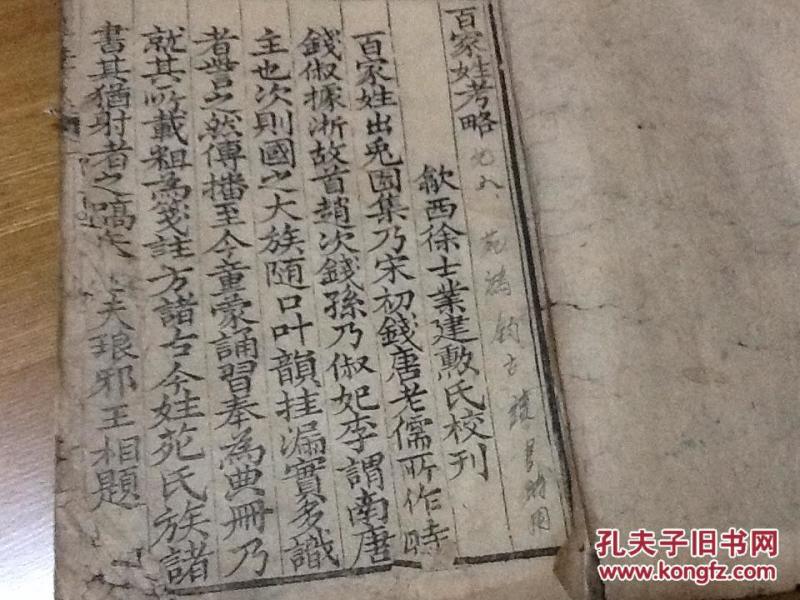 百家姓考略
歙西徐士業建勲氏校刊
百家姓出兎園集乃宋初錢唐老儒所作時
錢俶據浙故首趙次錢孫乃俶妃李謂南唐
主也次則國之大族随口叶韻挂漏實多識
者訾之然傳播至今童蒙誦習奉為典冊乃
就其所載粗為箋註方諸古今姓苑氏族諸
書其猶射者之嚆矢 夫琅邪王相題
孔夫子旧书网
www.kongfz.com